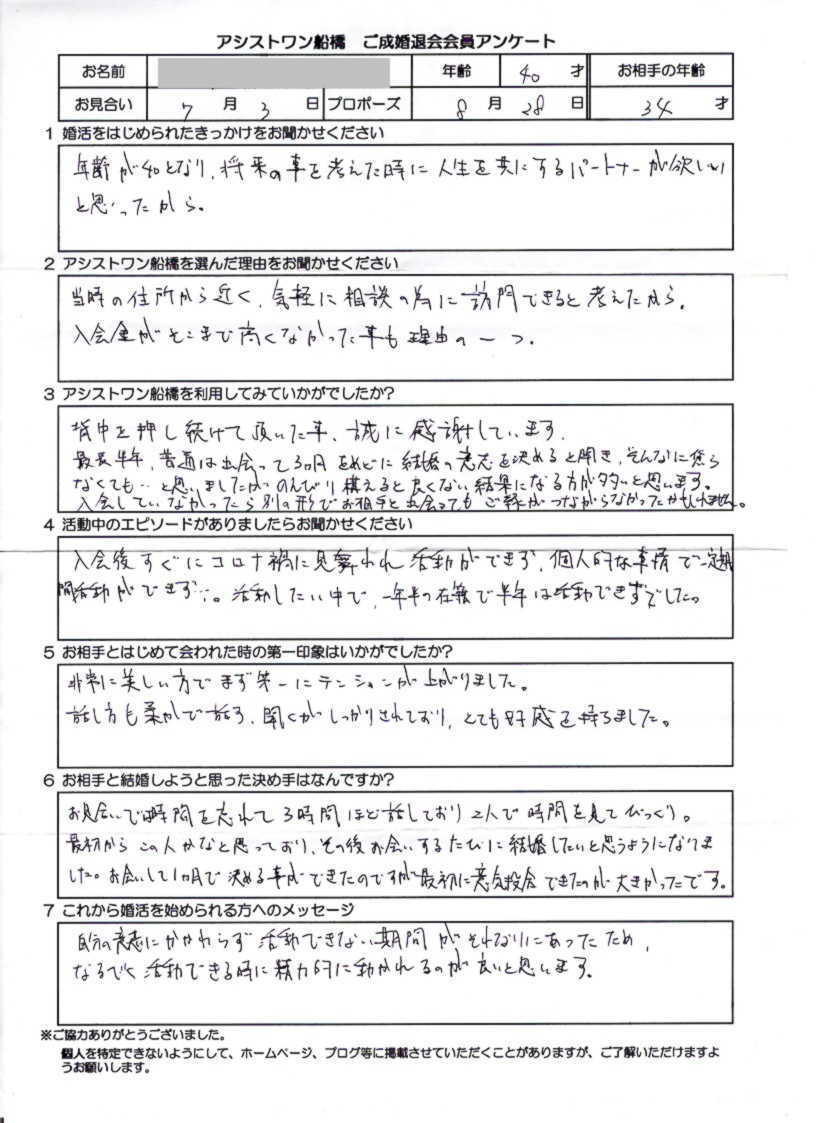 アシストワン船橋 ご成婚退会会員アンケート
お名前 年齢 40 才 お相手の年齢
お見合い 7 月 3 日 プロポーズ 8 月 28 日 34 才
1 婚活をはじめられたきっかけをお聞かせください
年齢が40となり、将来の事を考えた時に人生を共にするパートナーが欲しい
と思ったから。
2 アシストワン船橋を選んだ理由をお聞かせください
当時の住所から近く、気軽に相談の為に訪問できると考えたから。
入会金がそこまで高くなかった事も理由の一つ。
3 アシストワン船橋を利用してみていかがでしたか?
背中を押し続けて頂いた事、誠に感謝しています。
最長半年、普通は出会って3ヶ月をめどに結婚の意志を決めると聞き、そんなに焦ら
なくても…と思いましたがのんびり構えると良くない結果になる方が多いと思います。
入会していなかったら別の形でお相手と出会ってもご縁がつながらなかったかもしれません。
4 活動中のエピソードがありましたらお聞かせください
入会後すぐにコロナ禍に見舞われ活動ができず、個人的な事情で一定期
間活動ができず…。活動したい中で、一年半の在籍で半年は活動できずでした。
5 お相手とはじめて会われた時の第一印象はいかがでしたか?
非常に美しい方でまず第一にテンションが上がりました。
話し方も柔かで話す、聞くがしっかりされており、とても好感を持ちました。
6 お相手と結婚しようと思った決め手はなんですか?
お見合いで時間を忘れて3時間ほど話しており2人で時間を見てびっくり。
最初からこの人かなと思っており、その後お会いするたびに結婚したいと思うようになりま
した。お会いして1ヶ月で決める事ができたのですが最初に意気投合できたのが大きかったです。
7 これから婚活を始められる方へのメッセージ
自分の意志にかかわらず活動できない期間がそれなりにあったため、
なるべく活動できる時に精力的に動かれるのが良いと思います。
※ご協力ありがとうございました。
個人を特定できないようにして、ホームページ、ブログ等に掲載させていただくことがありますが、ご了解いただけますよ
うお願いします。